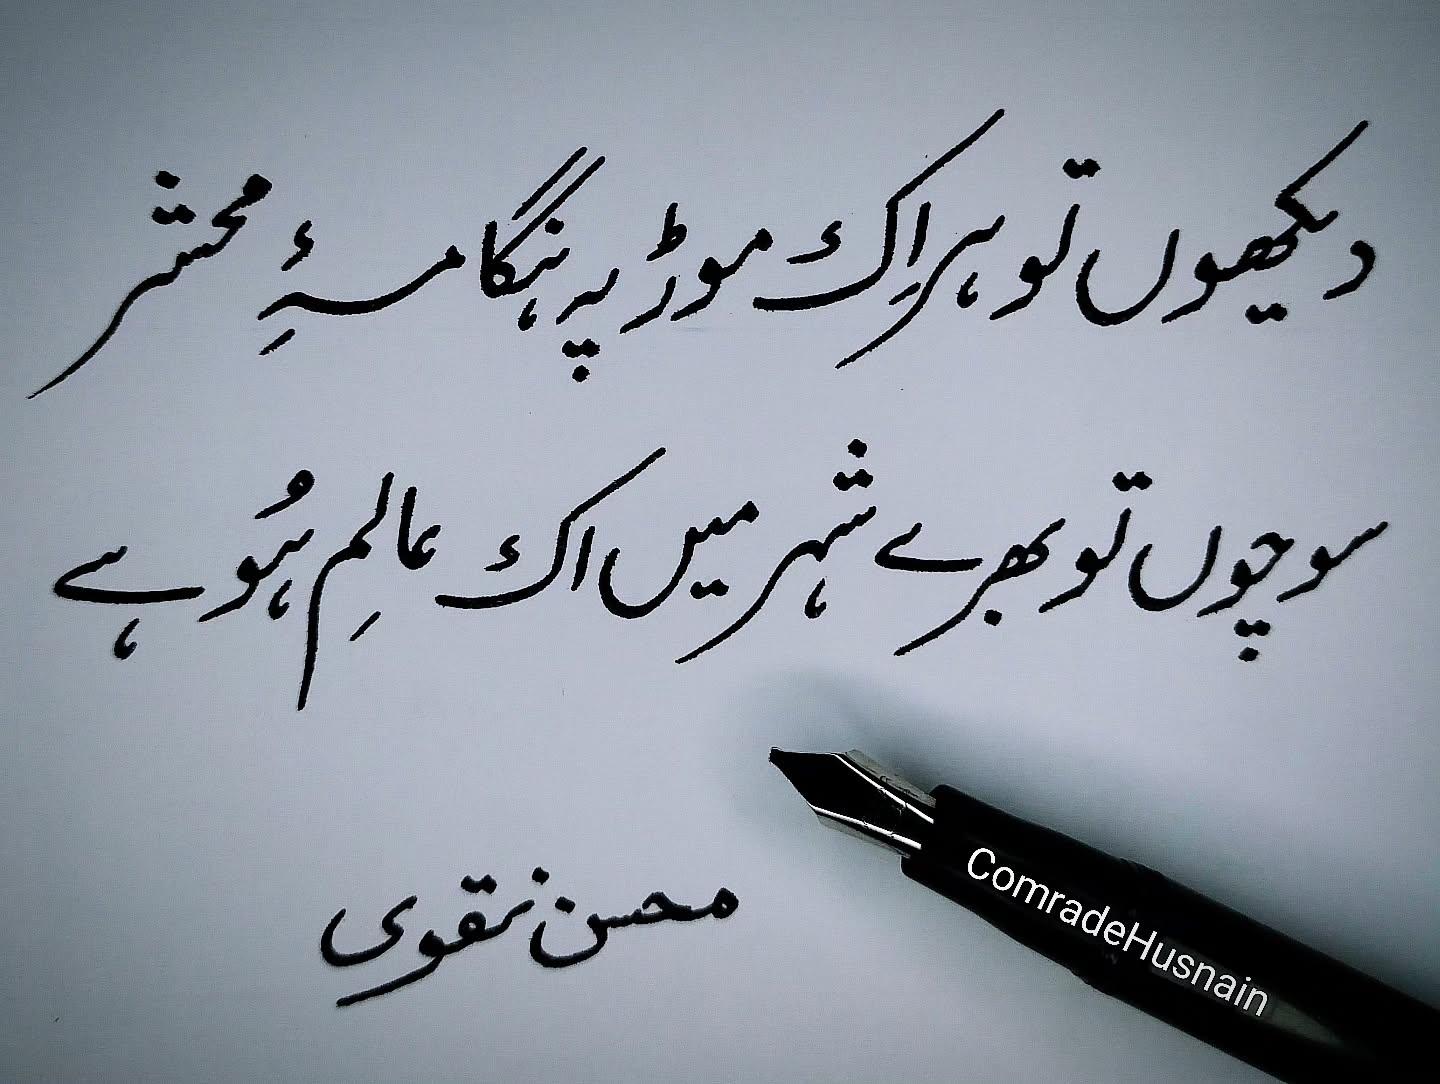 دیکھوں تو ہر اِک موڑ پہ ہنگامۂِ محشر
سوچوں تو بھرے شہر میں اک عالمِ ہُو ہے
محسن نقوی
ComradeHusnain